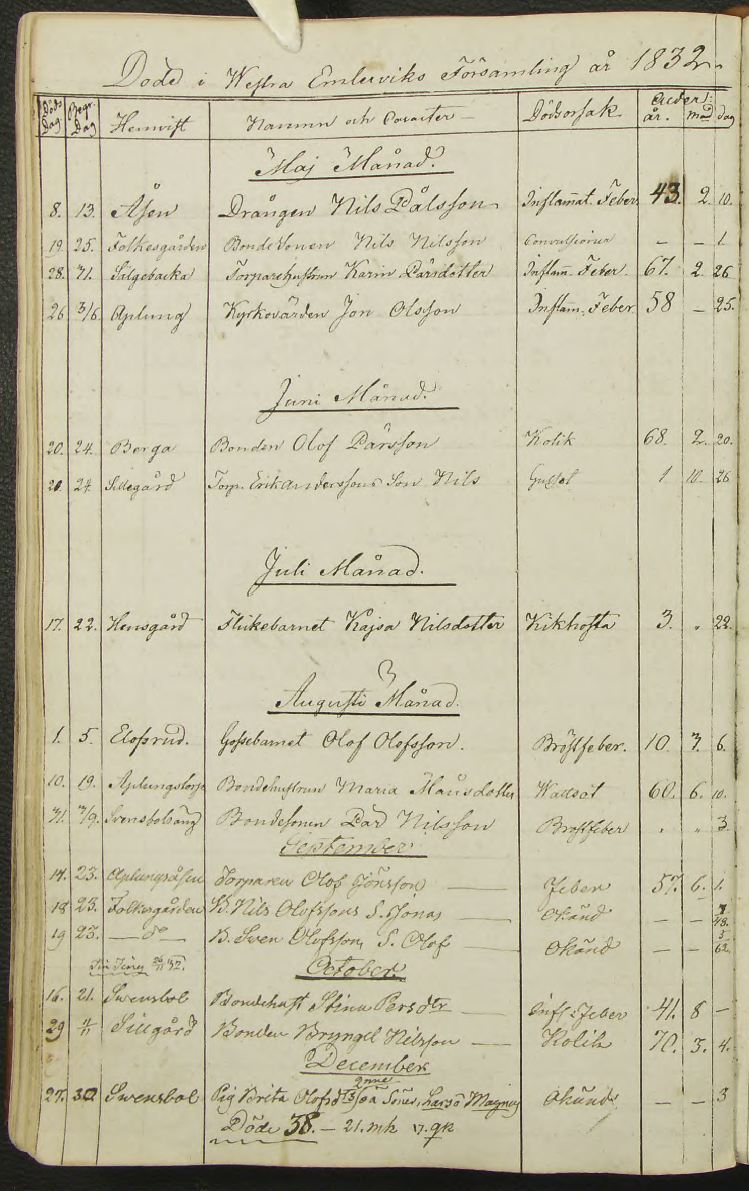 Döde i Westra Emterviks Församling år 1832
Döds Dag Begr. Dag Hemvist Namn och Caracter Dödsorsak Ålder: år. mad dag
Maj Månad.
8. 13. Åsen Drängen Nils Pålsson Inflamat. Feber 43 2. 10.
19 25. Folkesgården BondeSonen Nils Nilsson Convulsioner — — 1
28. 31. Silgebacka Torparehustrun Karin Pärsdotter Inflam- Feber 67. 2 26
26 3/6. Aplung Kyrkovärden Jon Olsson Inflam. Feber. 58 — 25.
Juni Månad.
20. 24. Berga Bonden Olof Pärsson Kolik 68. 2. 20.
20. 24. Sillegård Torp. Erik Anderssons Son Nils 1 10. 26
Juli Månad.
17. 22. Hensgård Flickebarnet Kajsa Nilsdotter Kikhosta 3. " 22.
Augusti Månad.
1. 5. Elofsrud. Gossebarnet Olof Olofsson. Bröstfeber. 10. 3. 6.
10. 19. Aplungstorp Bondehustrun Maria Månsdotter Wattsot 60. 6. 10.
31. /9. Svensbolsäng Bondesonen Pär Nilsson Bröstfeber " " 3
September
14. 23. Aplungsåsen Torparen Olof Jönsson — Feber 57. 6. 1.
18 23. Folkesgården B. Nils Olofssons S. Jonas — Okänd — —
19 23. — do — B. Sven Olofsson, S. Olof — Okänd — —
October.
16. 21. Swensbol Bondehust Stina Persdtr — Infl: Feber 41. 8 —
29 4/11 Sillegård Bonden Bryngel Nilsson — Kolik 70. 3. 4.
December
27. 30 Swensbol Pig Brita Olofsdtrs oä Söner, Lars o Magnus Okänd. — 3
Döde 38. — 21. mk 17. qk